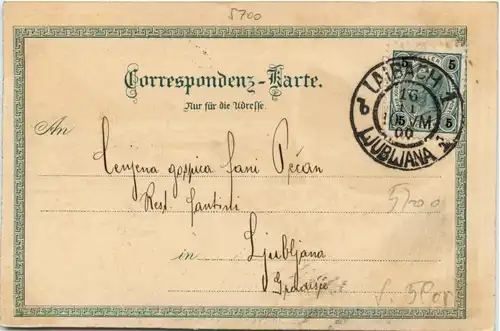 5700
Correspondenz-Karte.
Nur für die Adresse.
LAIBACH 1
16
VM
00
LJUBLJANA 1
5
5
5
An
Cenjena gospica Fani Pečan
Rest. Fantini
5/700
in Ljubljana